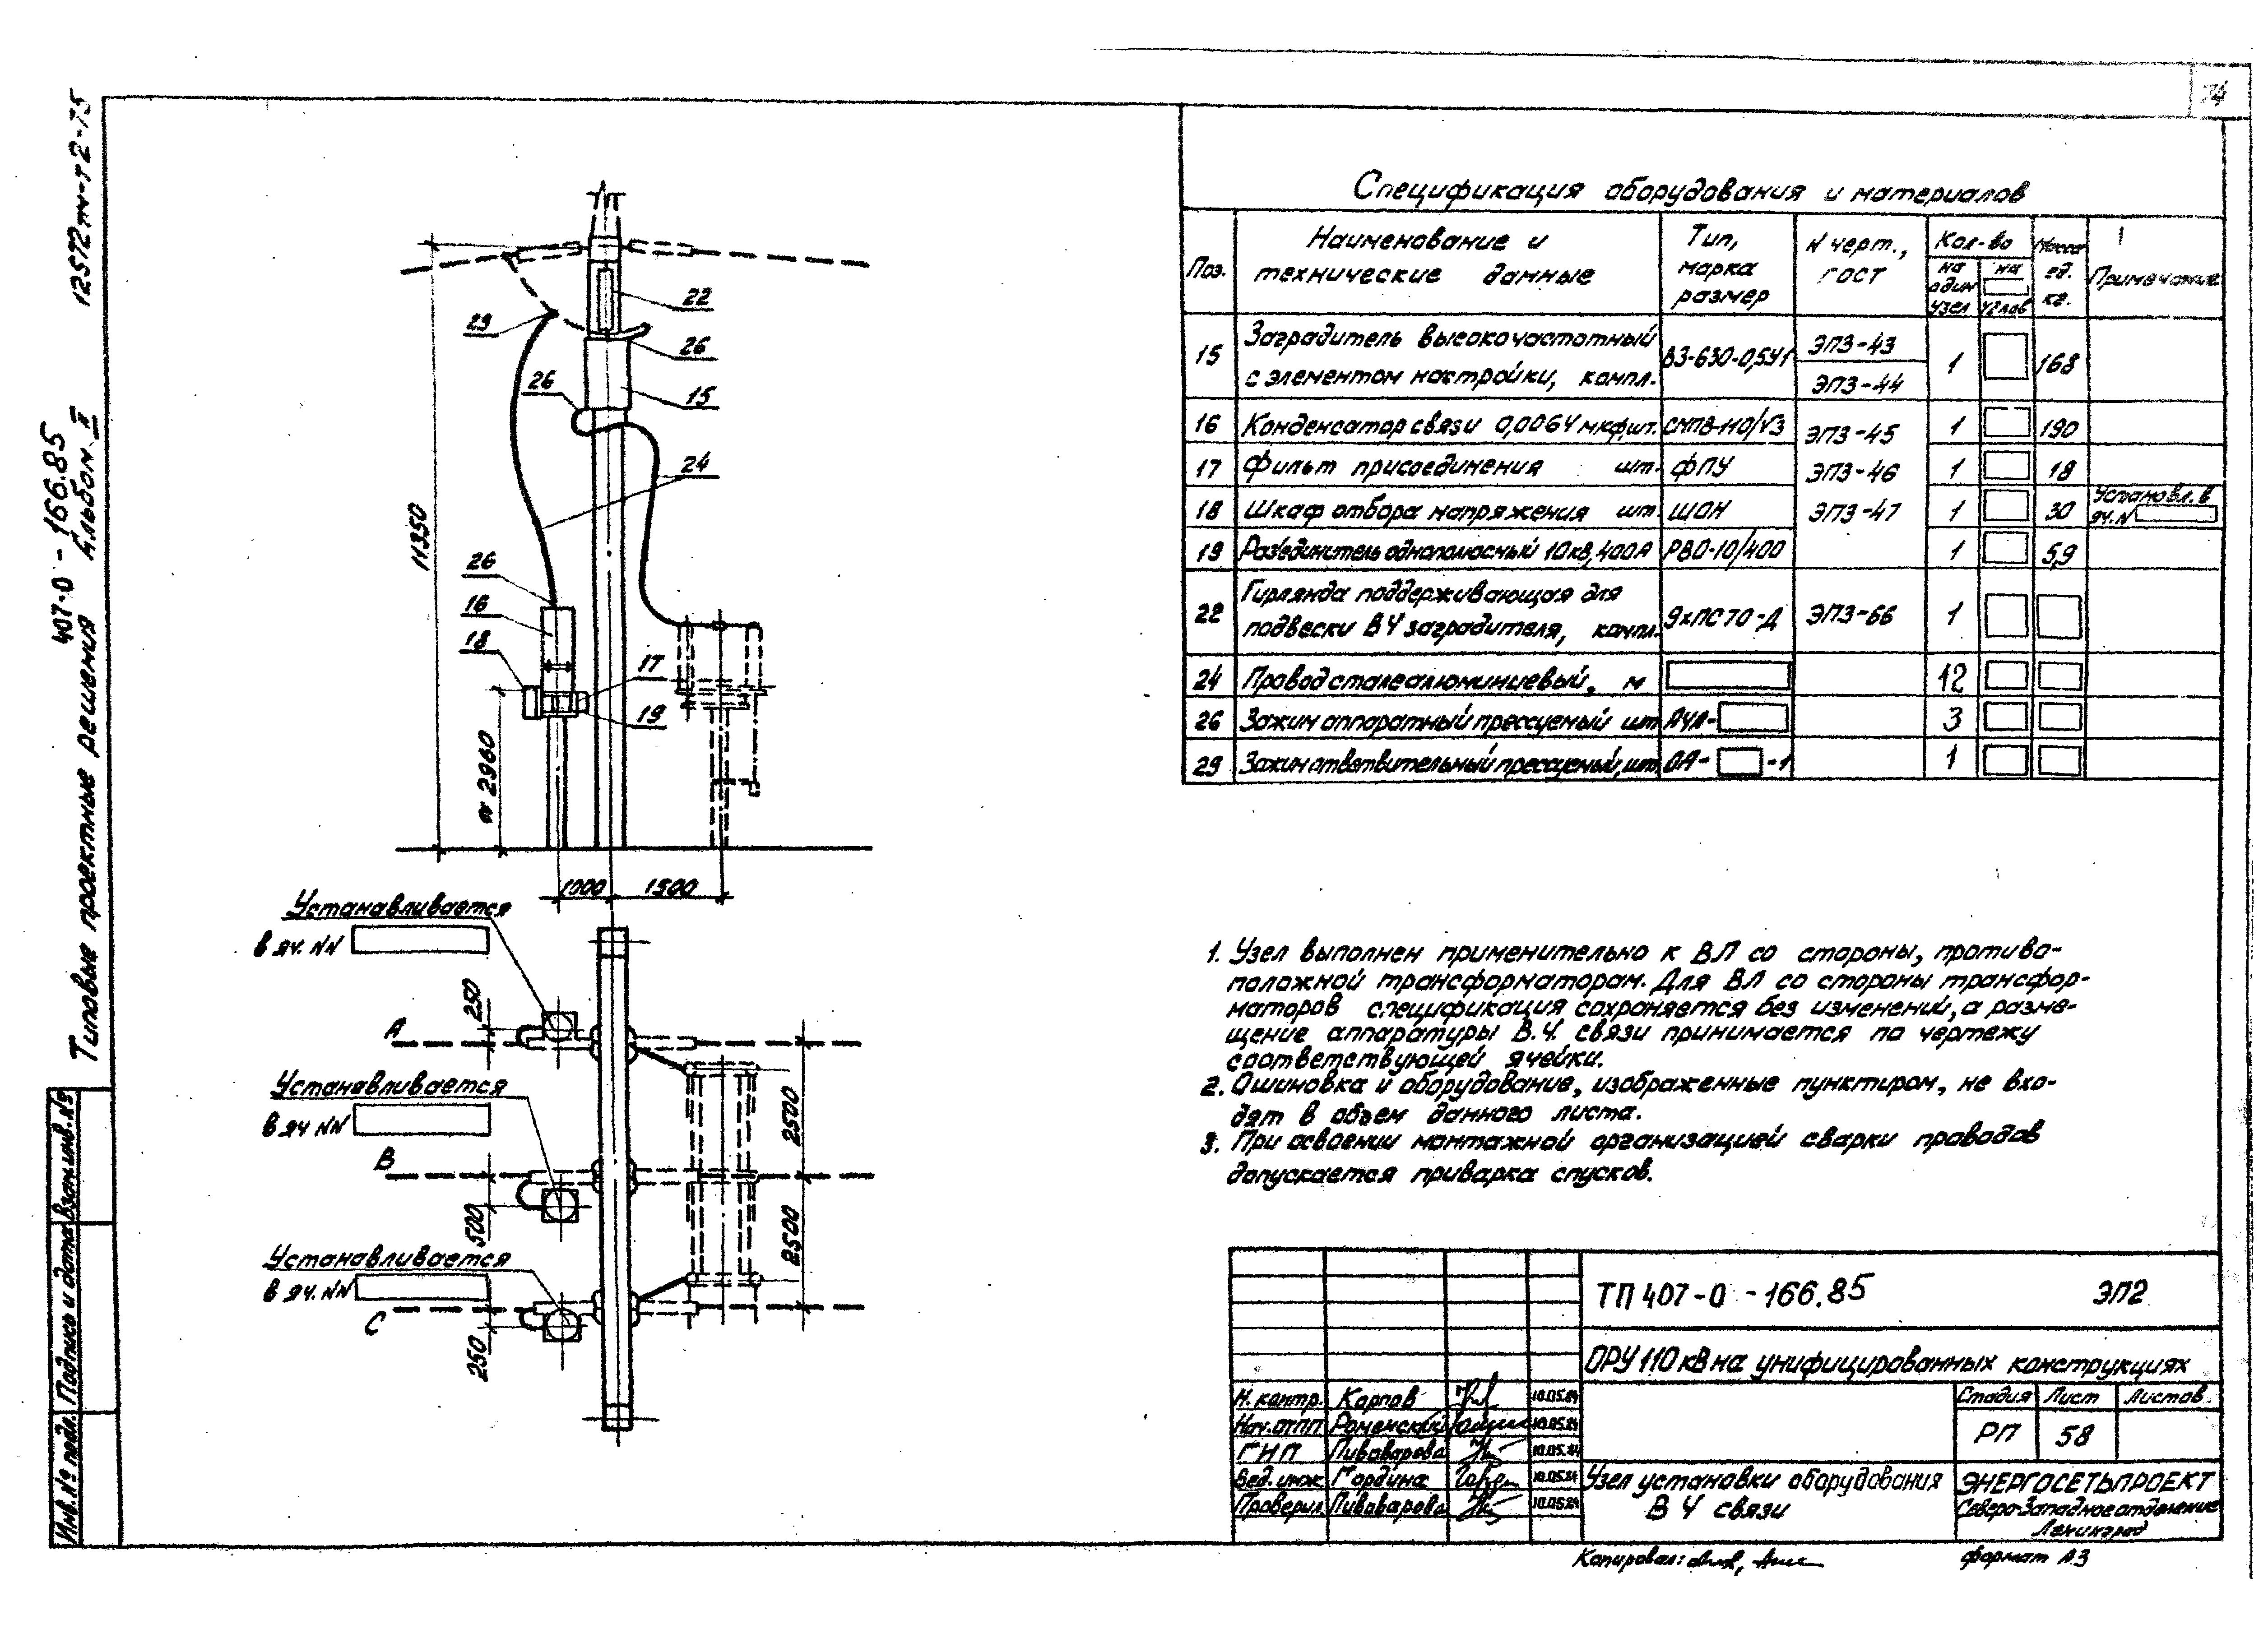 74
12572тм-т2-75
407-0-166.85
Альбом II
Типовые проектные решения
Взам.инв.№
Подпись и дата
Инв.№ подл.
22
29
26
26
15
24
11350
26
16
18
17
19
≈2960
1000
1500
Устанавливается
в яч. NN
250
А
Устанавливается
в яч NN
2500
В
500
2500
Устанавливается
в яч. NN
С
250
Спецификация оборудования и материалов
Поз. Наименование и технические данные Тип, марка размер N черт., ГОСТ Кол-во на один узел на узлов Масса ед. кг. Примечание
15 Заградитель высокочастотный с элементом настройки, компл. ВЗ-630-0,5У1 ЭП3-43 ЭП3-44 1 168
16 Конденсатор связи 0,0064 мкф,шт. СМПВ-110/√3 ЭП3-45 1 190
17 Фильт присоединения шт. ФПУ ЭП3-46 1 18
18 Шкаф отбора напряжения шт. ШОН ЭП3-47 1 30 Установл. в яч. N
19 Разъединитель однополюсный 10кв,400А РВО-10/400 1 5,9
22 Гирлянда поддерживающая для подвески ВЧ заградителя, компл. 9хПС70-Д ЭП3-66 1
24 Провод сталеалюминиевый, м 12
26 Зажим аппаратный прессуемый шт. А4А- 3
29 Зажим ответвительный прессуемый, шт. ОА- -1 1
1. Узел выполнен применительно к ВЛ со стороны, противо-
положной трансформаторам. Для ВЛ со стороны трансфор-
маторов спецификация сохраняется без изменений, а разме-
щение аппаратуры В.Ч. связи принимается по чертежу
соответствующей ячейки.
2. Ошиновка и оборудование, изображенные пунктиром, не вхо-
дят в объем данного листа.
3. При освоении монтажной организацией сварки проводов
допускается приварка спусков.
ТП 407-0-166.85 ЭП2
ОРУ 110 кВ на унифицированных конструкциях
Н. контр. Карпов 10.05.84
Нач.ОТП Роменский 10.05.84
ГИП Пивоварова 10.05.84
Вед. инж. Гордина 10.05.84
Проверил Пивоварова 10.05.84
Стадия Лист Листов
РП 58
Узел установки оборудования
ВЧ связи
ЭНЕРГОСЕТЬПРОЕКТ
Северо-Западное отделение
Ленинград
Копировал:
формат А3